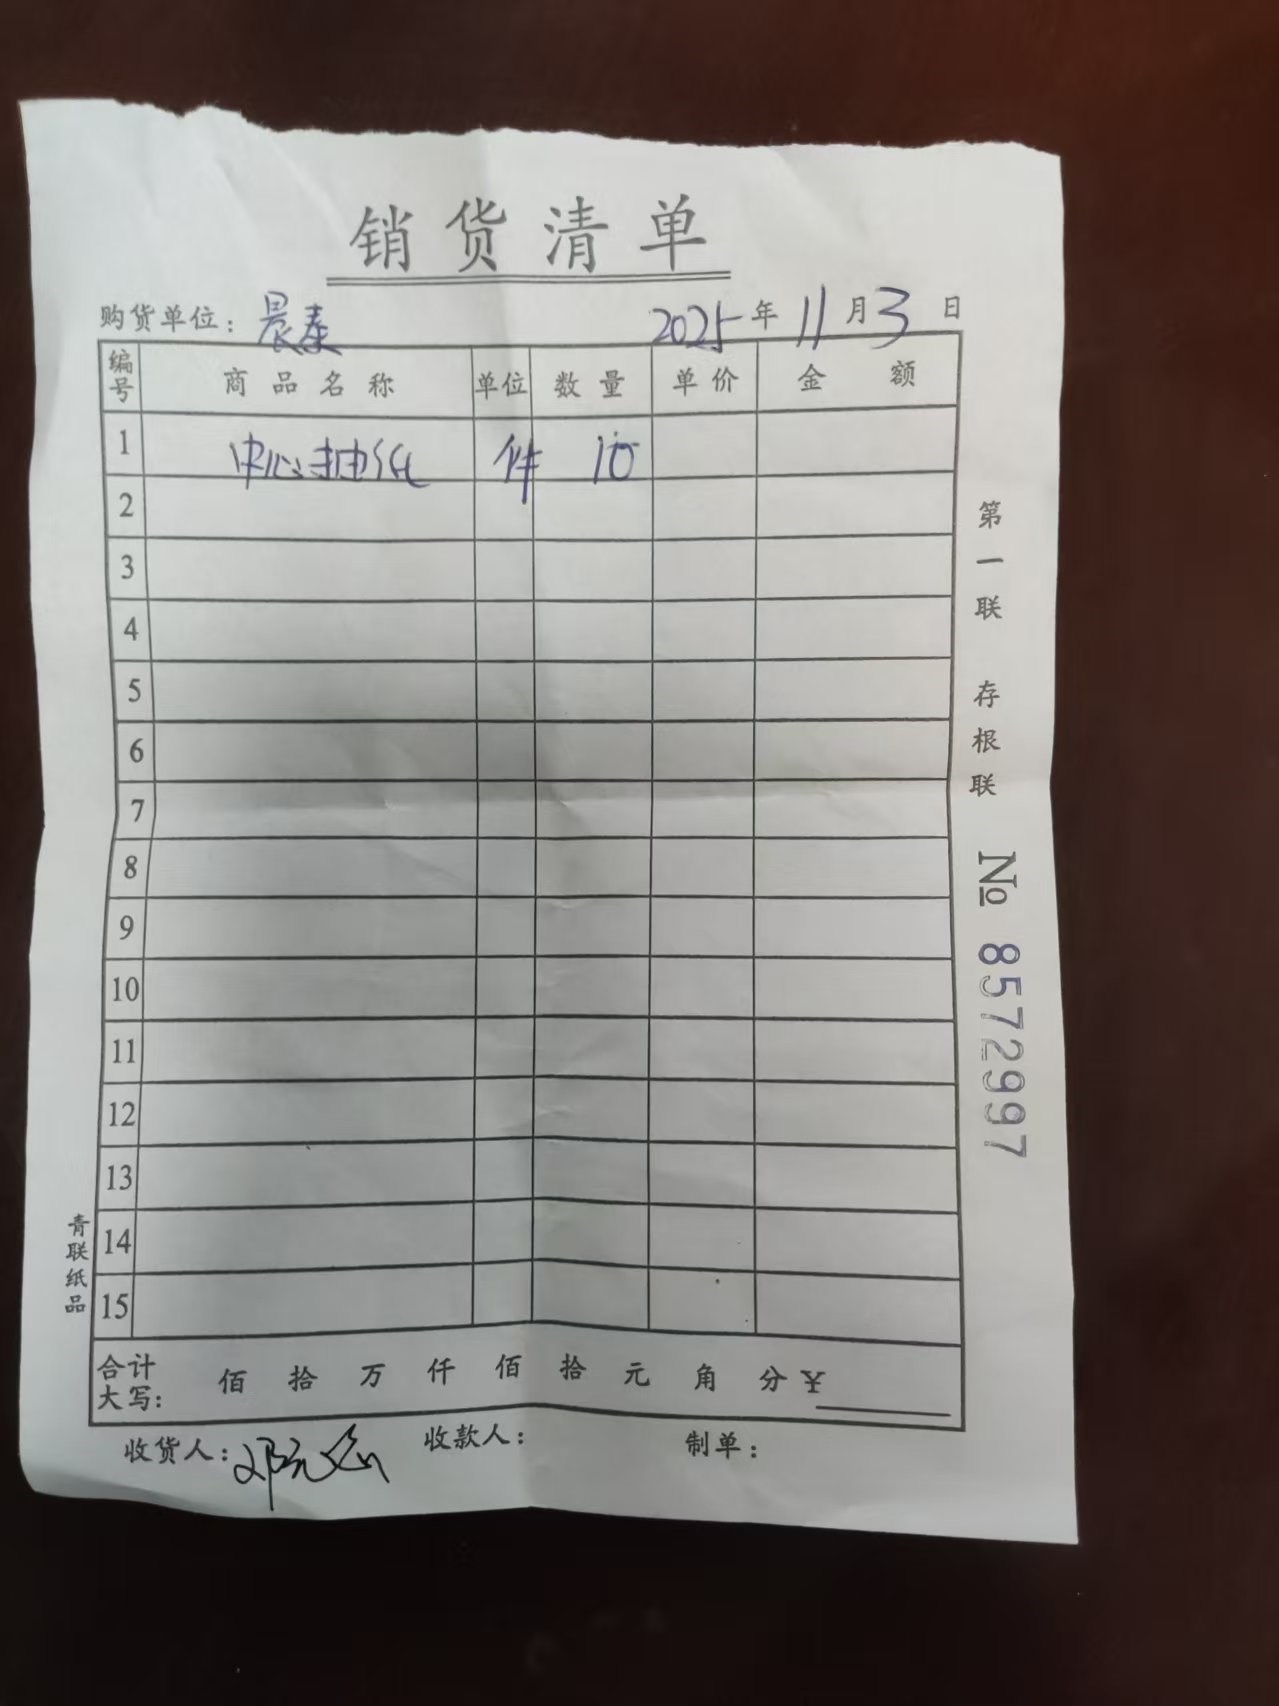 销货清单
购货单位：晨泰 2025年11月3日
编号 商品名称 单位 数量 单价 金额
1 中心抽纸 件 10
2
3
4
5
6
7
8
9
10
11
12
13
14
15
合计大写： 佰 拾 万 仟 佰 拾 元 角 分 ¥
收货人： 收款人： 制单：
第一联 存根联 № 8572997
青联纸品